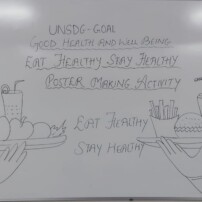 UNSDG-GOAL
GOOD HEALTH AND WELL BEING
EAT HEALTHY STAY HEALTHY
POSTER MAKING ACTIVITY
EAT HEALTHY
STAY HEALTHY